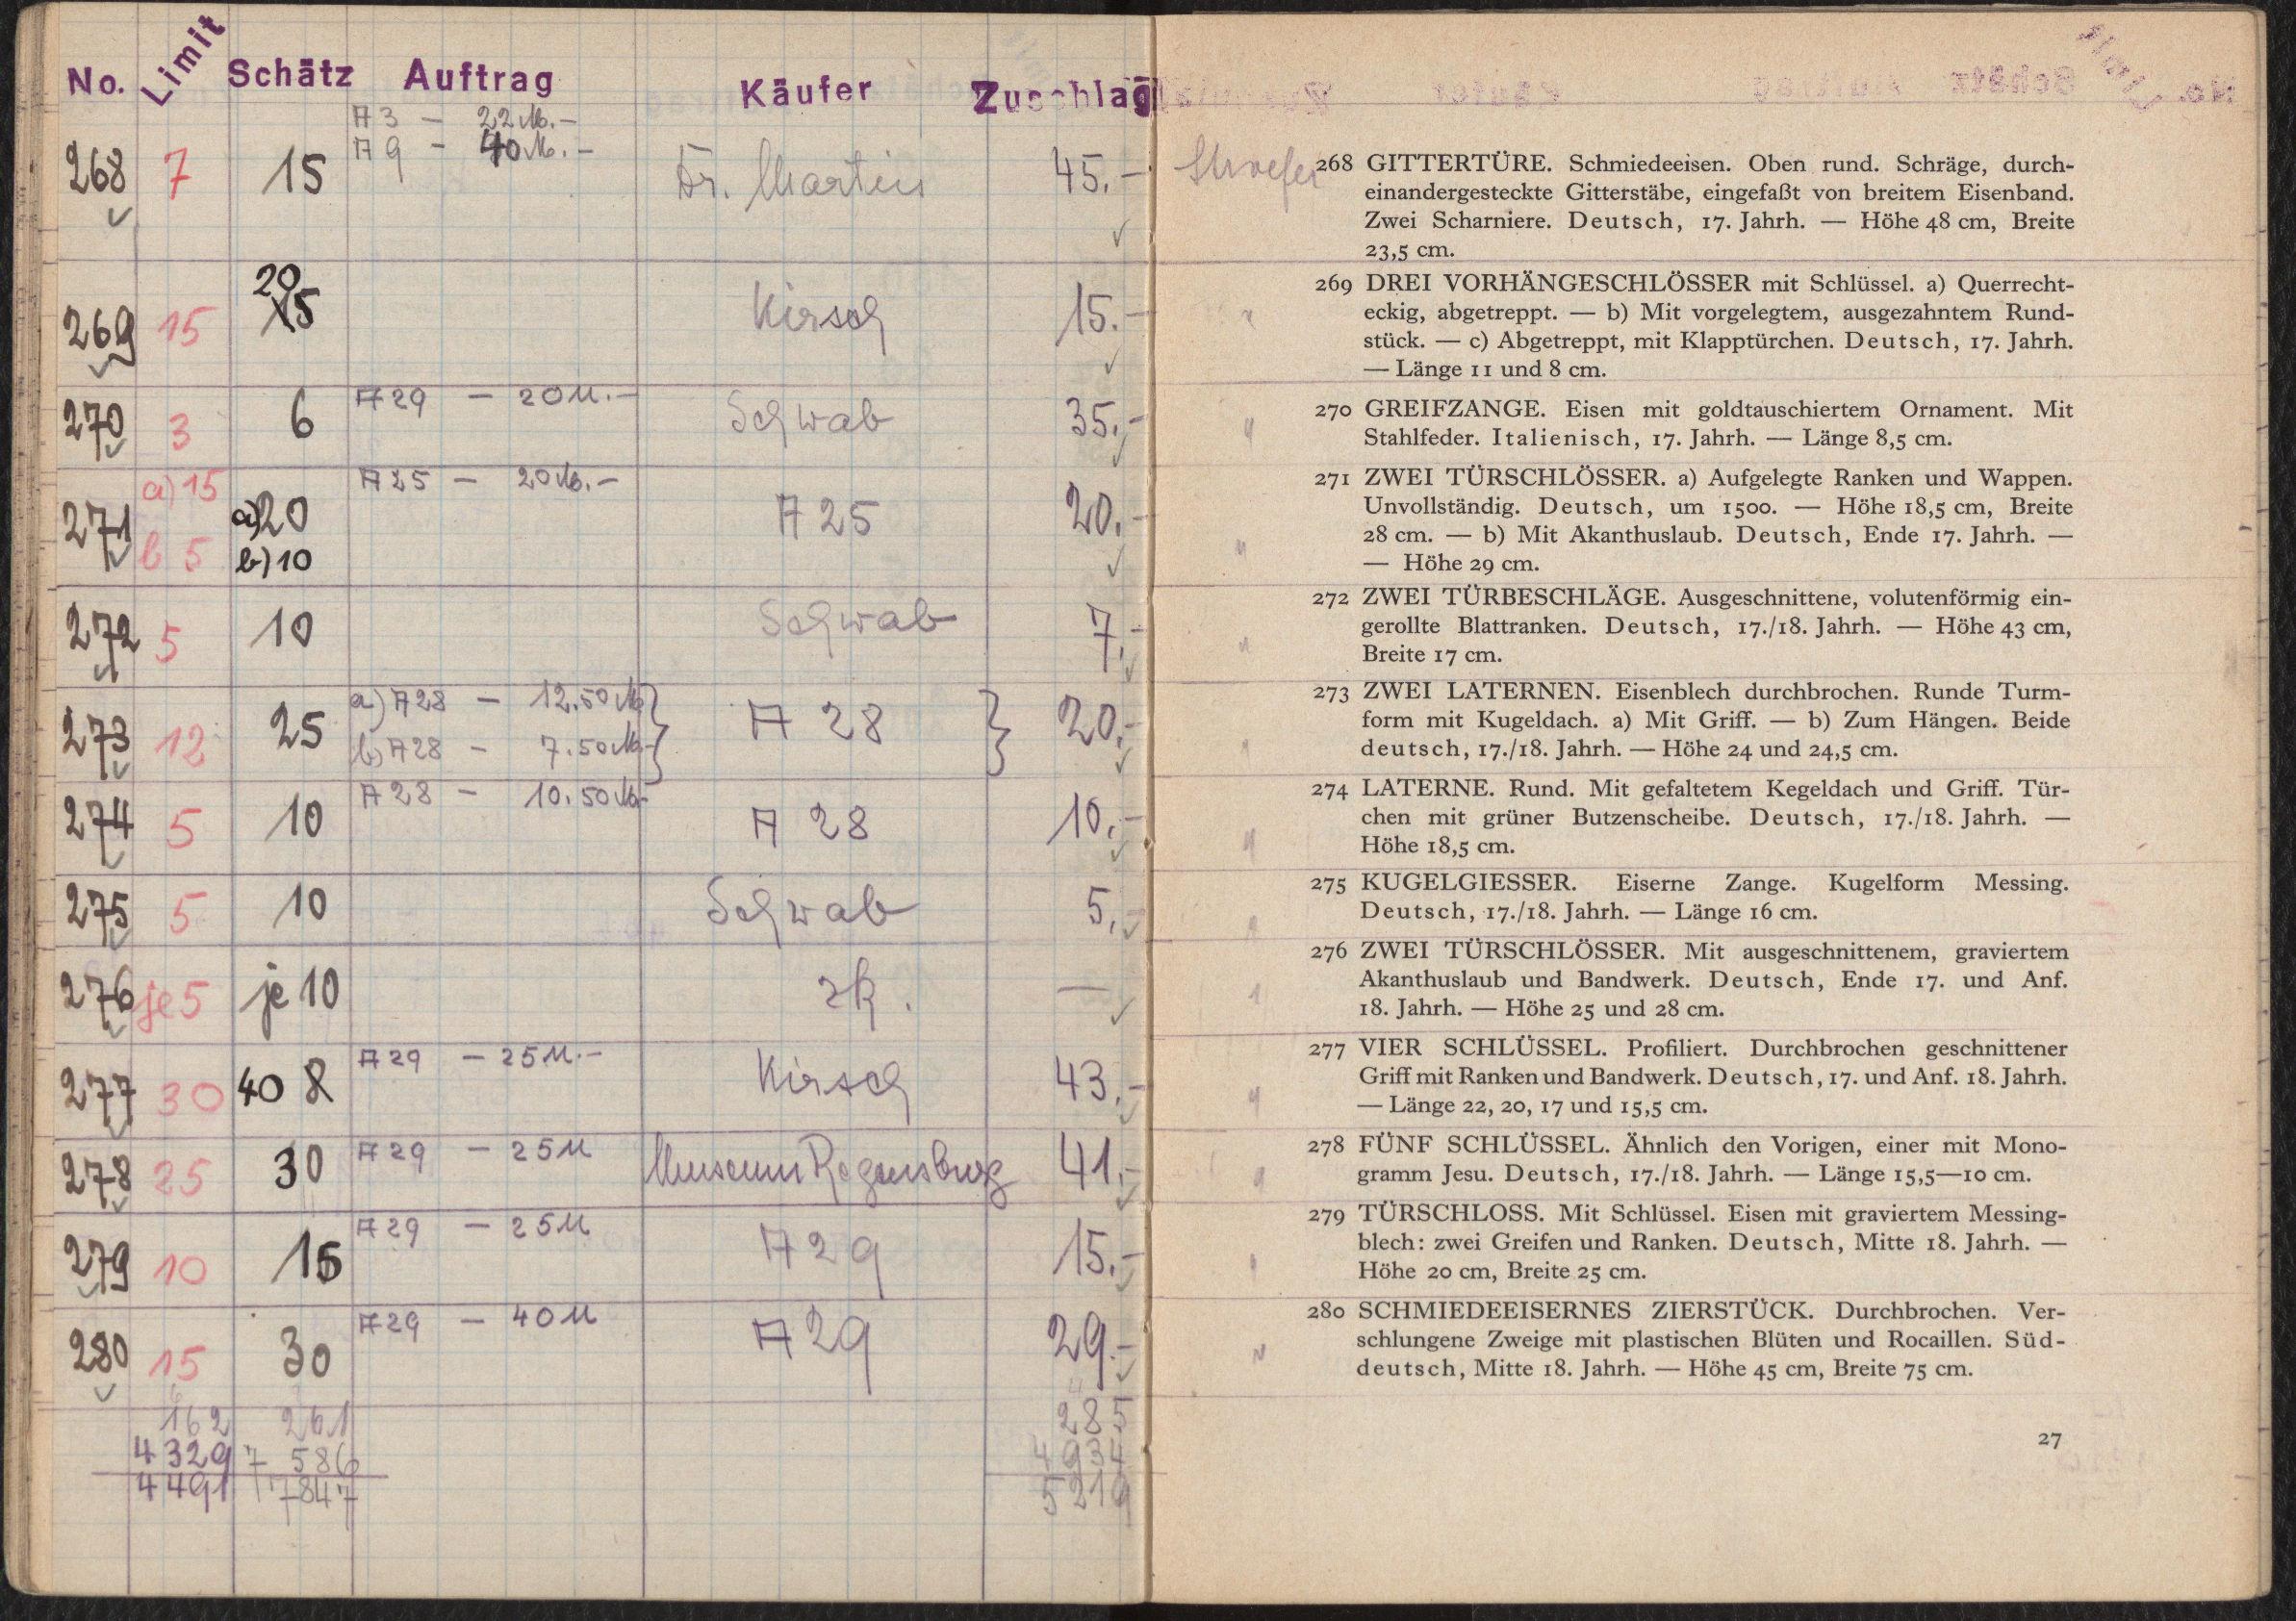 No. Limit Schätz Auftrag Käufer Zuschlag
A 3 – 22 M.–
A 9 – 40 M.–
268 7 15 Dr. Martin 45.–
20
269 15 15 Kirsch 15.–
A 29 – 20 M.–
270 3 6 Schwab 35.–
a) 15 A 25 – 20 M.–
271 a) 20 A 25 20.–
b 5 b) 10
272 5 10 Schwab 7.–
a) A 28 – 12.50 M
273 12 25 A 28 20.–
b) A 28 – 7.50 M.–
A 28 – 10.50 M.–
274 5 10 A 28 10.–
275 5 10 Schwab 5.–
276 je 5 je 10 zk. —
A 29 – 25 M.–
277 30 40 8 Kirsch 43.–
A 29 – 25 M
278 25 30 Museum Regensburg 41.–
A 29 – 25 M
279 10 15 A 29 15.–
A 29 – 40 M
280 15 30 A 29 29.–
162 261 285
4329 7 586 4934
4491 7847 5219
268 GITTERTÜRE. Schmiedeeisen. Oben rund. Schräge, durch-
einandergesteckte Gitterstäbe, eingefaßt von breitem Eisenband.
Zwei Scharniere. Deutsch, 17. Jahrh. — Höhe 48 cm, Breite
23,5 cm.
269 DREI VORHÄNGESCHLÖSSER mit Schlüssel. a) Querrecht-
eckig, abgetreppt. — b) Mit vorgelegtem, ausgezahntem Rund-
stück. — c) Abgetreppt, mit Klapptürchen. Deutsch, 17. Jahrh.
— Länge 11 und 8 cm.
270 GREIFZANGE. Eisen mit goldtauschiertem Ornament. Mit
Stahlfeder. Italienisch, 17. Jahrh. — Länge 8,5 cm.
271 ZWEI TÜRSCHLÖSSER. a) Aufgelegte Ranken und Wappen.
Unvollständig. Deutsch, um 1500. — Höhe 18,5 cm, Breite
28 cm. — b) Mit Akanthuslaub. Deutsch, Ende 17. Jahrh. —
— Höhe 29 cm.
272 ZWEI TÜRBESCHLÄGE. Ausgeschnittene, volutenförmig ein-
gerollte Blattranken. Deutsch, 17./18. Jahrh. — Höhe 43 cm,
Breite 17 cm.
273 ZWEI LATERNEN. Eisenblech durchbrochen. Runde Turm-
form mit Kugeldach. a) Mit Griff. — b) Zum Hängen. Beide
deutsch, 17./18. Jahrh. — Höhe 24 und 24,5 cm.
274 LATERNE. Rund. Mit gefaltetem Kegeldach und Griff. Tür-
chen mit grüner Butzenscheibe. Deutsch, 17./18. Jahrh. —
Höhe 18,5 cm.
275 KUGELGIESSER. Eiserne Zange. Kugelform Messing.
Deutsch, 17./18. Jahrh. — Länge 16 cm.
276 ZWEI TÜRSCHLÖSSER. Mit ausgeschnittenem, graviertem
Akanthuslaub und Bandwerk. Deutsch, Ende 17. und Anf.
18. Jahrh. — Höhe 25 und 28 cm.
277 VIER SCHLÜSSEL. Profiliert. Durchbrochen geschnittener
Griff mit Ranken und Bandwerk. Deutsch, 17. und Anf. 18. Jahrh.
— Länge 22, 20, 17 und 15,5 cm.
278 FÜNF SCHLÜSSEL. Ähnlich den Vorigen, einer mit Mono-
gramm Jesu. Deutsch, 17./18. Jahrh. — Länge 15,5—10 cm.
279 TÜRSCHLOSS. Mit Schlüssel. Eisen mit graviertem Messing-
blech: zwei Greifen und Ranken. Deutsch, Mitte 18. Jahrh. —
Höhe 20 cm, Breite 25 cm.
280 SCHMIEDEEISERNES ZIERSTÜCK. Durchbrochen. Ver-
schlungene Zweige mit plastischen Blüten und Rocaillen. Süd-
deutsch, Mitte 18. Jahrh. — Höhe 45 cm, Breite 75 cm.
27